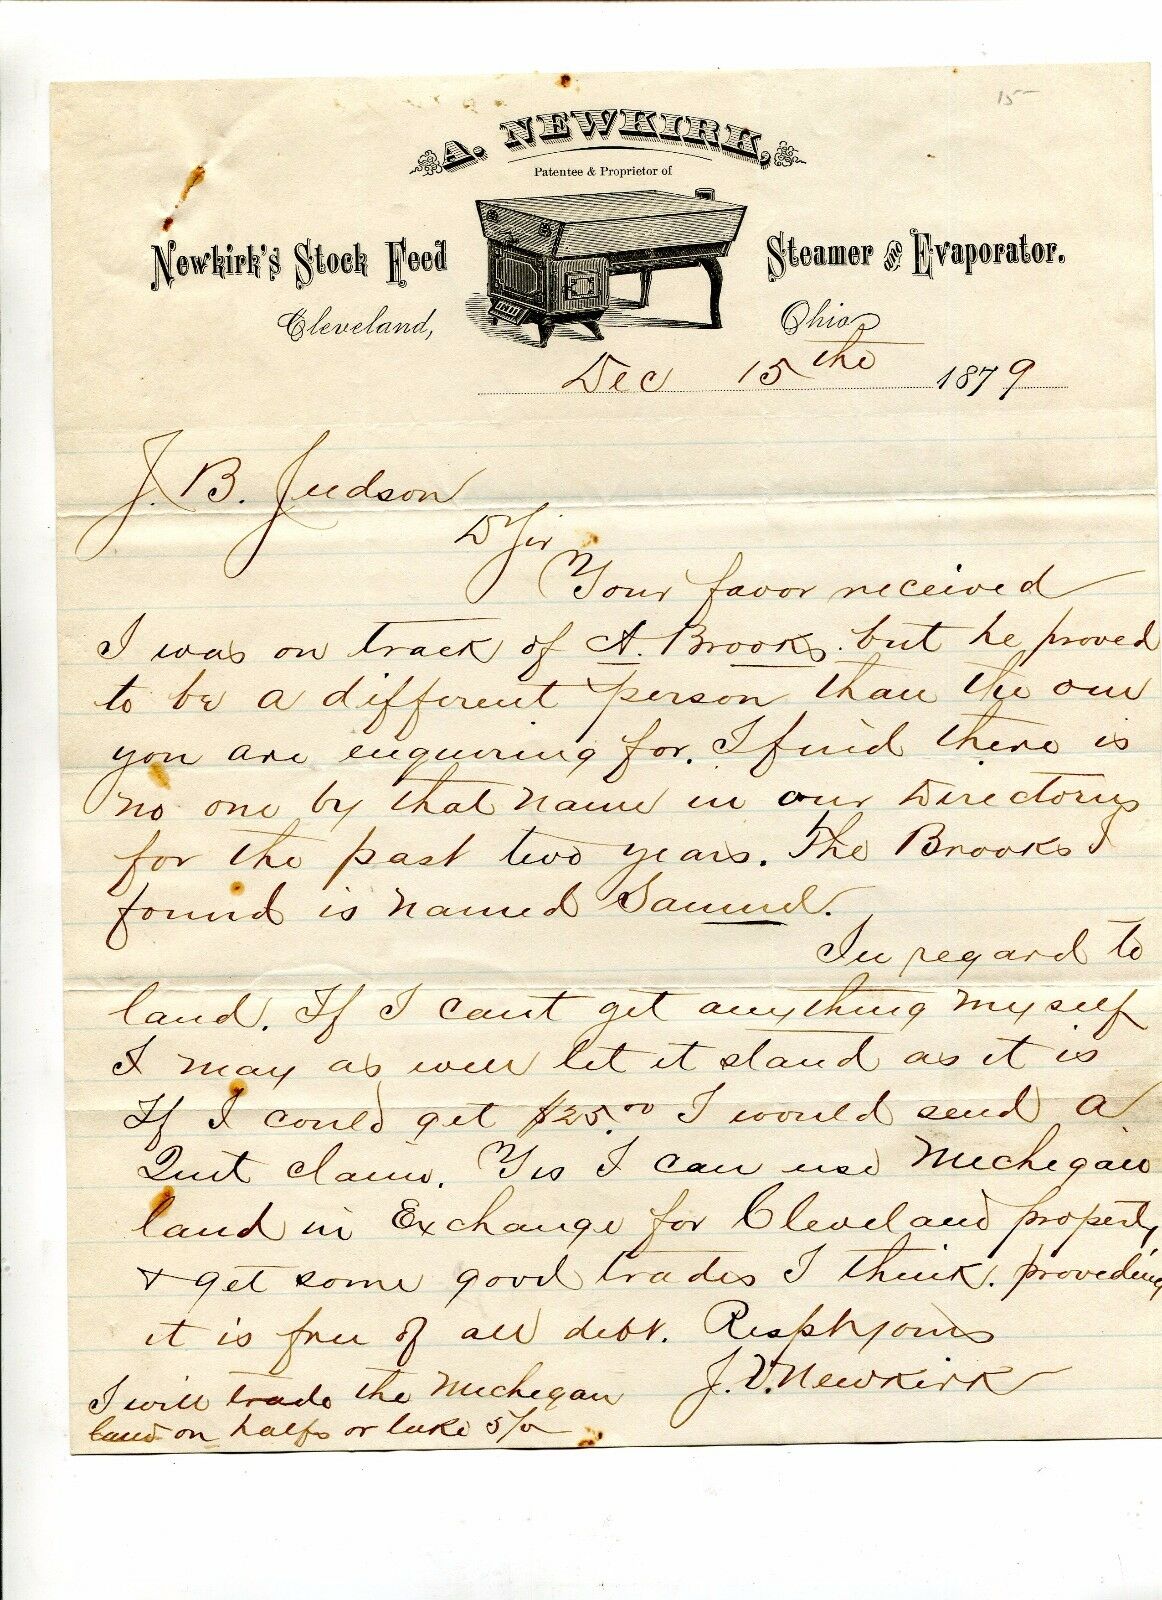 15
A. NEWKIRK,
Patentee & Proprietor of
Newkirk's Stock Feed Steamer and Evaporator.
Cleveland, Ohio
Dec 15th 1879
J. B. Judson
D Sir
Your favor received
I was on track of A. Brooks. but he proved
to be a different person than the one
you are enquiring for. I find there is
no one by that name in our Directorys
for the past two years. The Brooks I
found is named Samuel.
In regard to
land. If I cant get anything myself
I may as well let it stand as it is
If I could get $25.00 I would send a
Quit claim. Yes I can use Michegan
land in Exchange for Cleveland property
& get some good trades I think. proveding
it is free of all debt. Resptyours
J. V. Newkirk
I will trade the Michegan
land on halfs or take 5/o